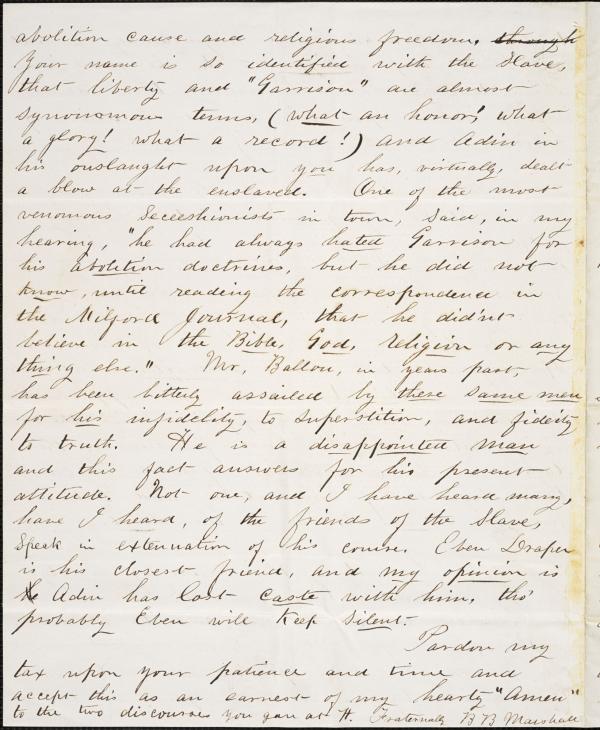 abolition cause and religious freedom. through
Your name is so identified with the slave,
that liberty and "Garrison" are almost
synonomous terms, (what an honor! what
a glory! what a record!) and Adin in
his onslaught upon you has, virtually, dealt
a blow at the enslaved. One of the most
venomous Seceeshionists in town, said, in my
hearing, "he had always hated Garrison for
his abolition doctrines, but he did not
know, until reading the correspondence in
the Milford Journal, that he did'nt
believe in the Bible, God, religion or any
thing else." Mr, Ballou, in years past,
has been bitterly assailed by these same men
for his infidelity, to superstition, and fidelity
to truth. He is a disappointed man
and this fact answers for his present
attitude. Not one, and I have heard many,
have I heard, of the friends of the slave,
speak in extenuation of his course. Eben Draper
is his closest friend, and my opinion is
Adin has lost caste with him, tho'
probably Eben will keep silent.
Pardon my
tax upon your patience and time and
accept this as an earnest of my hearty "Amen"
to the two discourses you gave at H. Fraternally B B Marshall